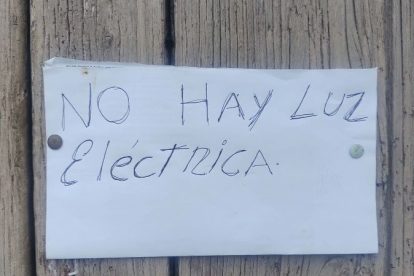 NO HAY LUZ
Eléctrica.